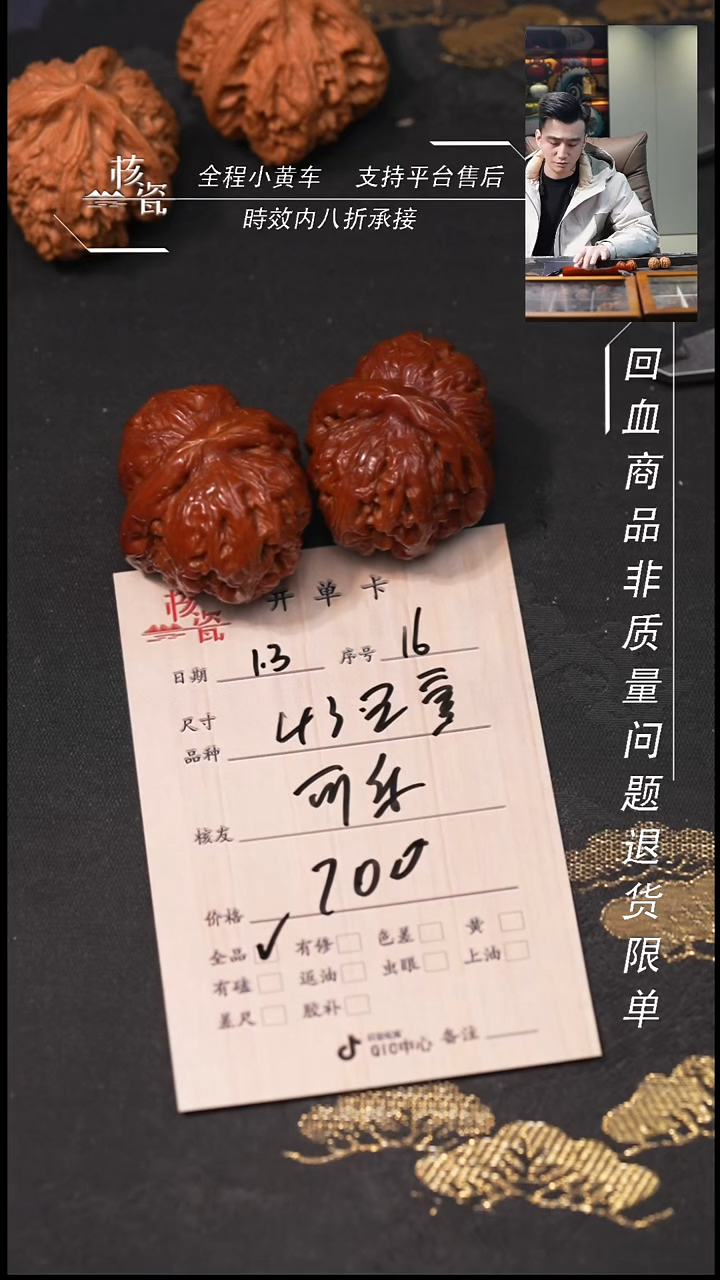 核瓷
全程小黄车 支持平台售后
時效内八折承接
回血商品非质量问题退货限单
核瓷
开单卡
日期 1.3 序号 16
尺寸
品种 43
核发
价格 700
全品 ✓ 有修 色差 黄
有磕 返油 虫眼 上油
差尺 胶补
QIC中心 备注